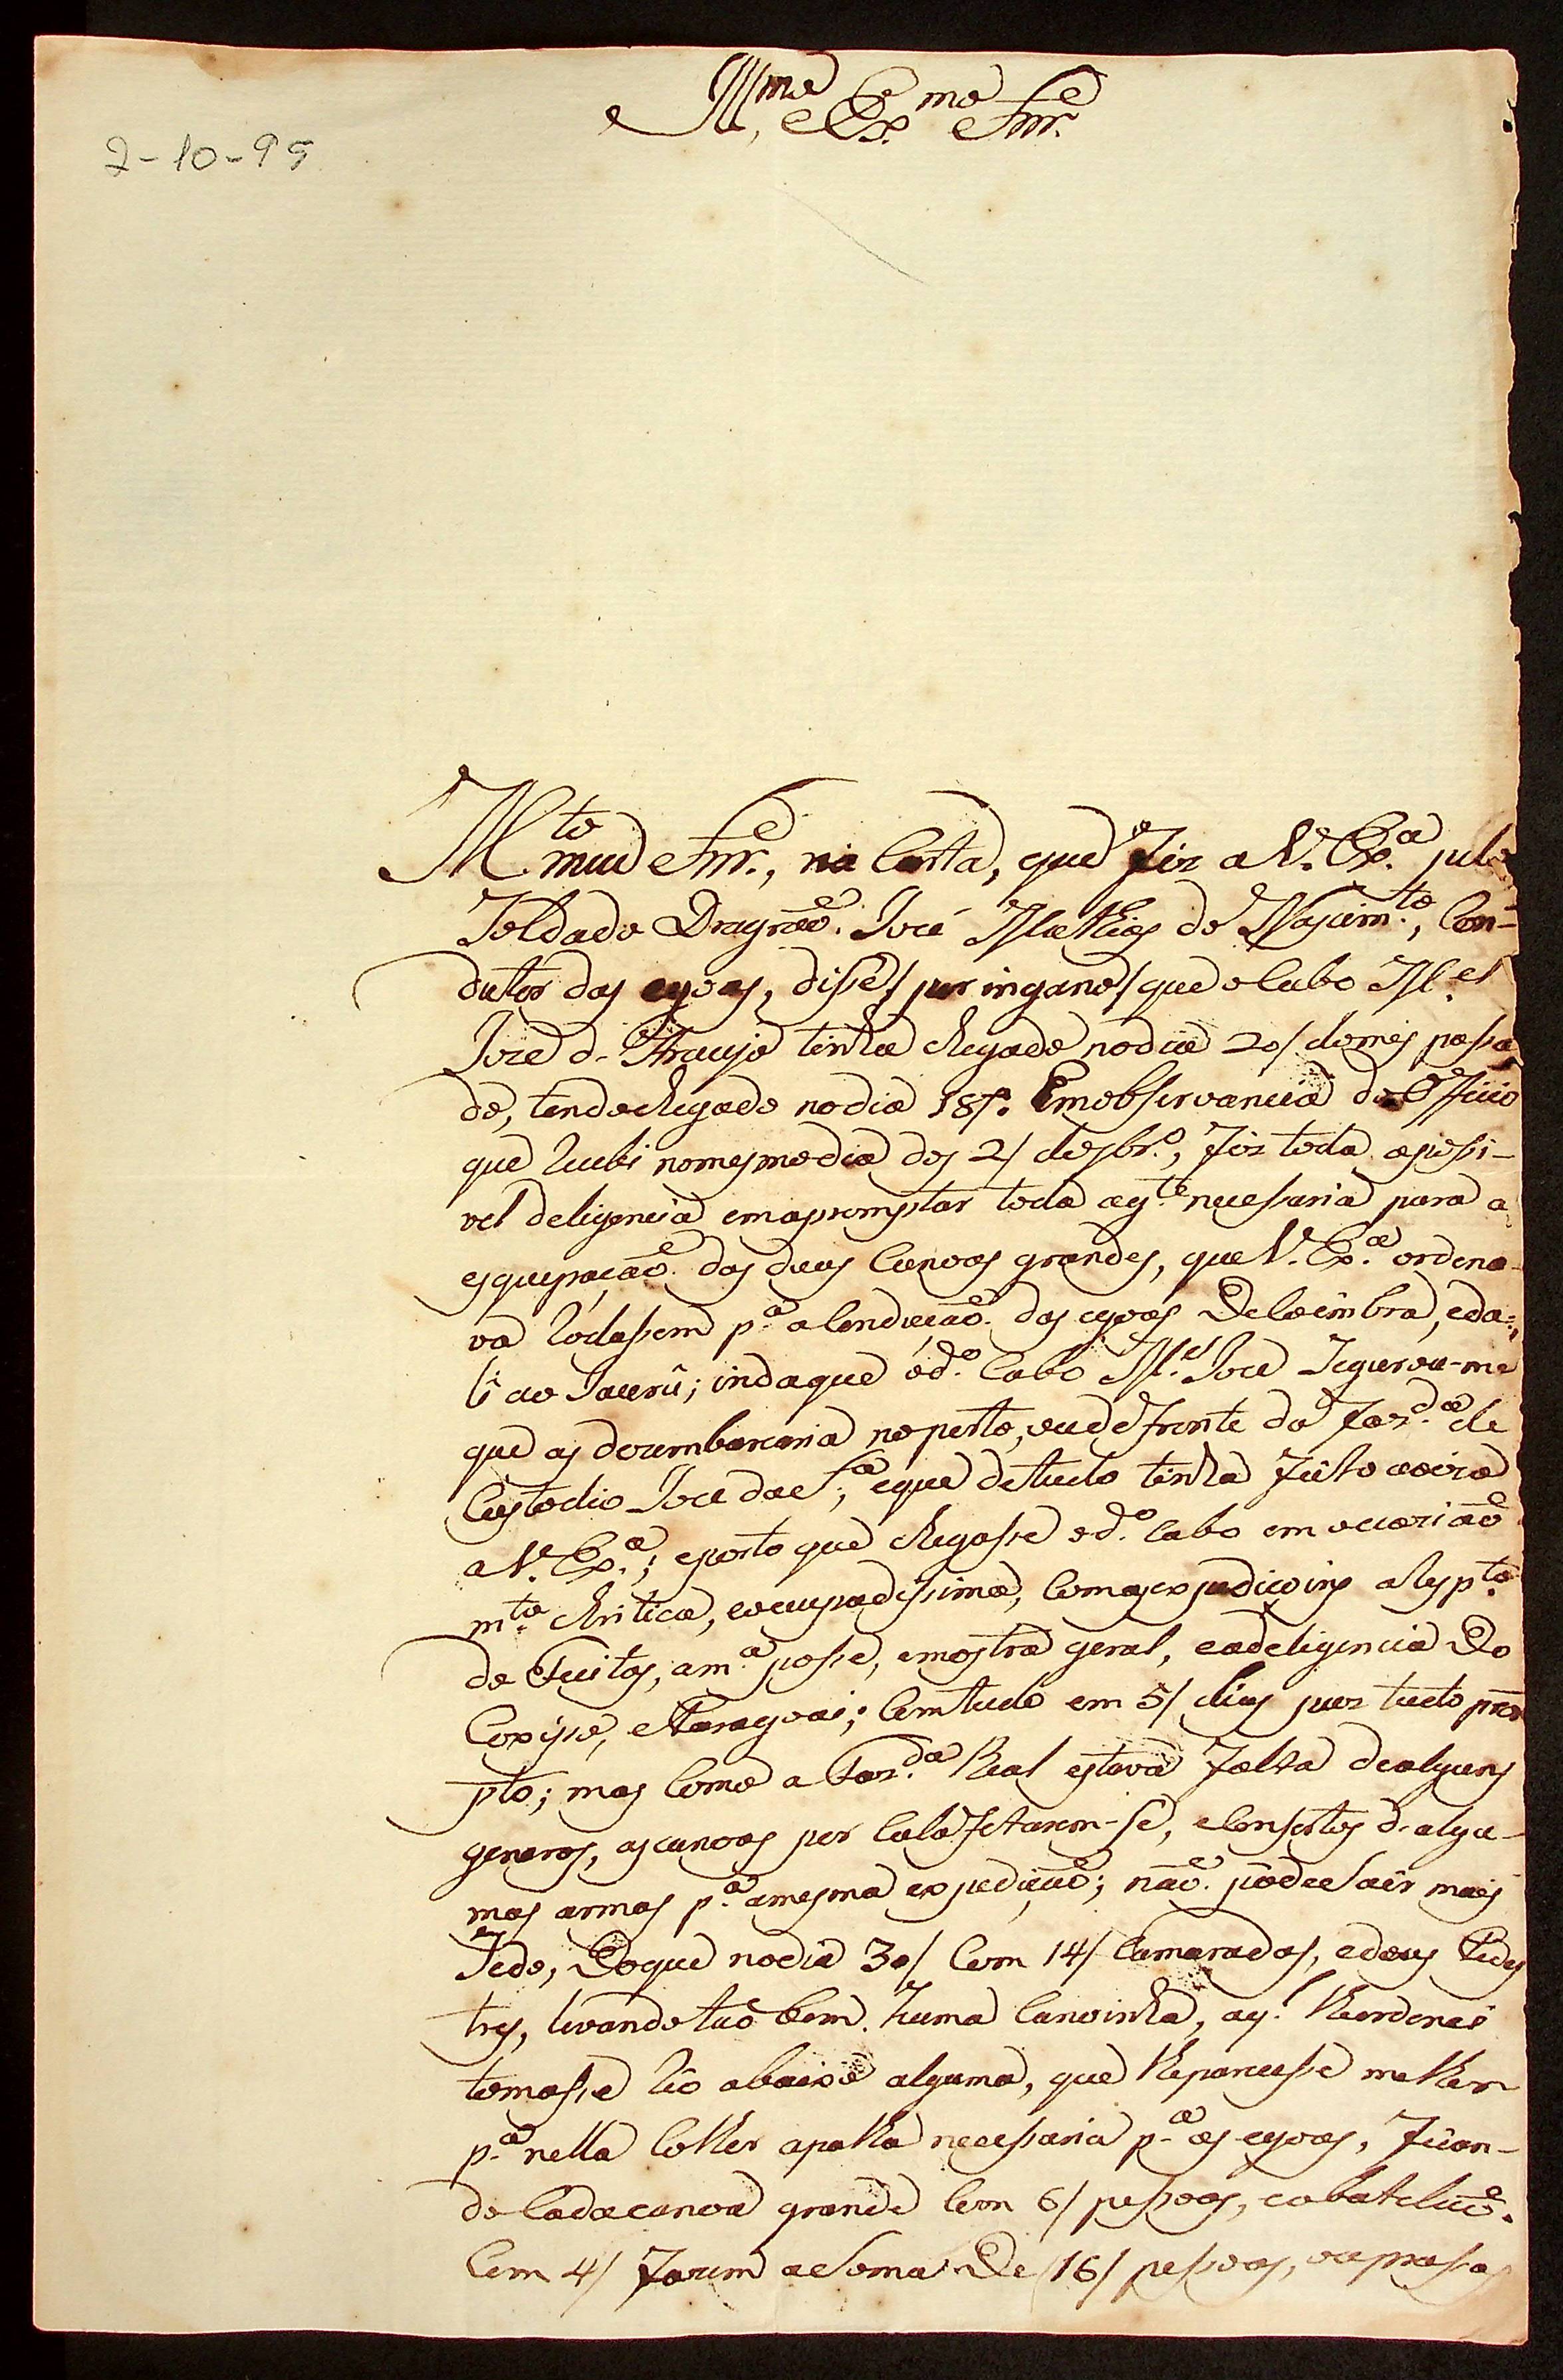 Ill.mo e Ex.mo Snr.
2-10-95
M.to meu Snr., na Carta, que fiz a V. Ex.a pelo
Soldado Dragaõ José Mathias do Nascim.to, Con-
dutor das egoas, disse / por ingano / que o Cabo M.el
Jozé d. Araujo tinha chegado no dia 20/ do mes passa
do, tendo chegado no dia 18/. Em observancia do Officio
que recebi no mesmo dia dos 2/ de 8br.o, fiz toda a possi-
vel deligencia em apromptar toda a g.te necessaria para a
esquipaçaõ das duas Canoas grandes, que V. Ex.a ordena-
va rodassem p.a a Conduçaõ das egoas De Coimbra, e da-
li ao Jaurú; inda que o d.o Cabo M.el Joze segurou-me
que as dezembarcaria no porto, ou defronte da Faz.da de
Custodio Joze da S.a, e que de tudo tinha feito aviso
a V. Ex.a; e posto que chegasse o d.o Cabo em occaziaõ
m.to Critica, e occupadissima, Com as expediçoins a resp.to
de Quitos, a m.a posse, e mostra geral, e a deligencia Do
Coxipó, e Paragoai; Comtudo em 5/ dias puz tudo prom
pto; mas Como a Faz.da Real estava falta de alguns
generos, as canoas por Calafetarem-se, e Consertos d. algu-
mas armas p.a a mesma expediçaõ; naõ pode sair mais
Sedo, Do que no dia 30/ Com 14/ Camaradas, e dous Pedes
tres, levando taõ bem huma Canoinha, a q.l lhe ordenei
tomasse rio abaixo alguma, que lhe parecesse melhor
p.a nella Colher a palha necessaria p.a as egoas, fican-
do Cada canoa grande Com 6/ pessoas, e o batelaõ
Com 4/ fazem a Soma De /16/ pessoas,